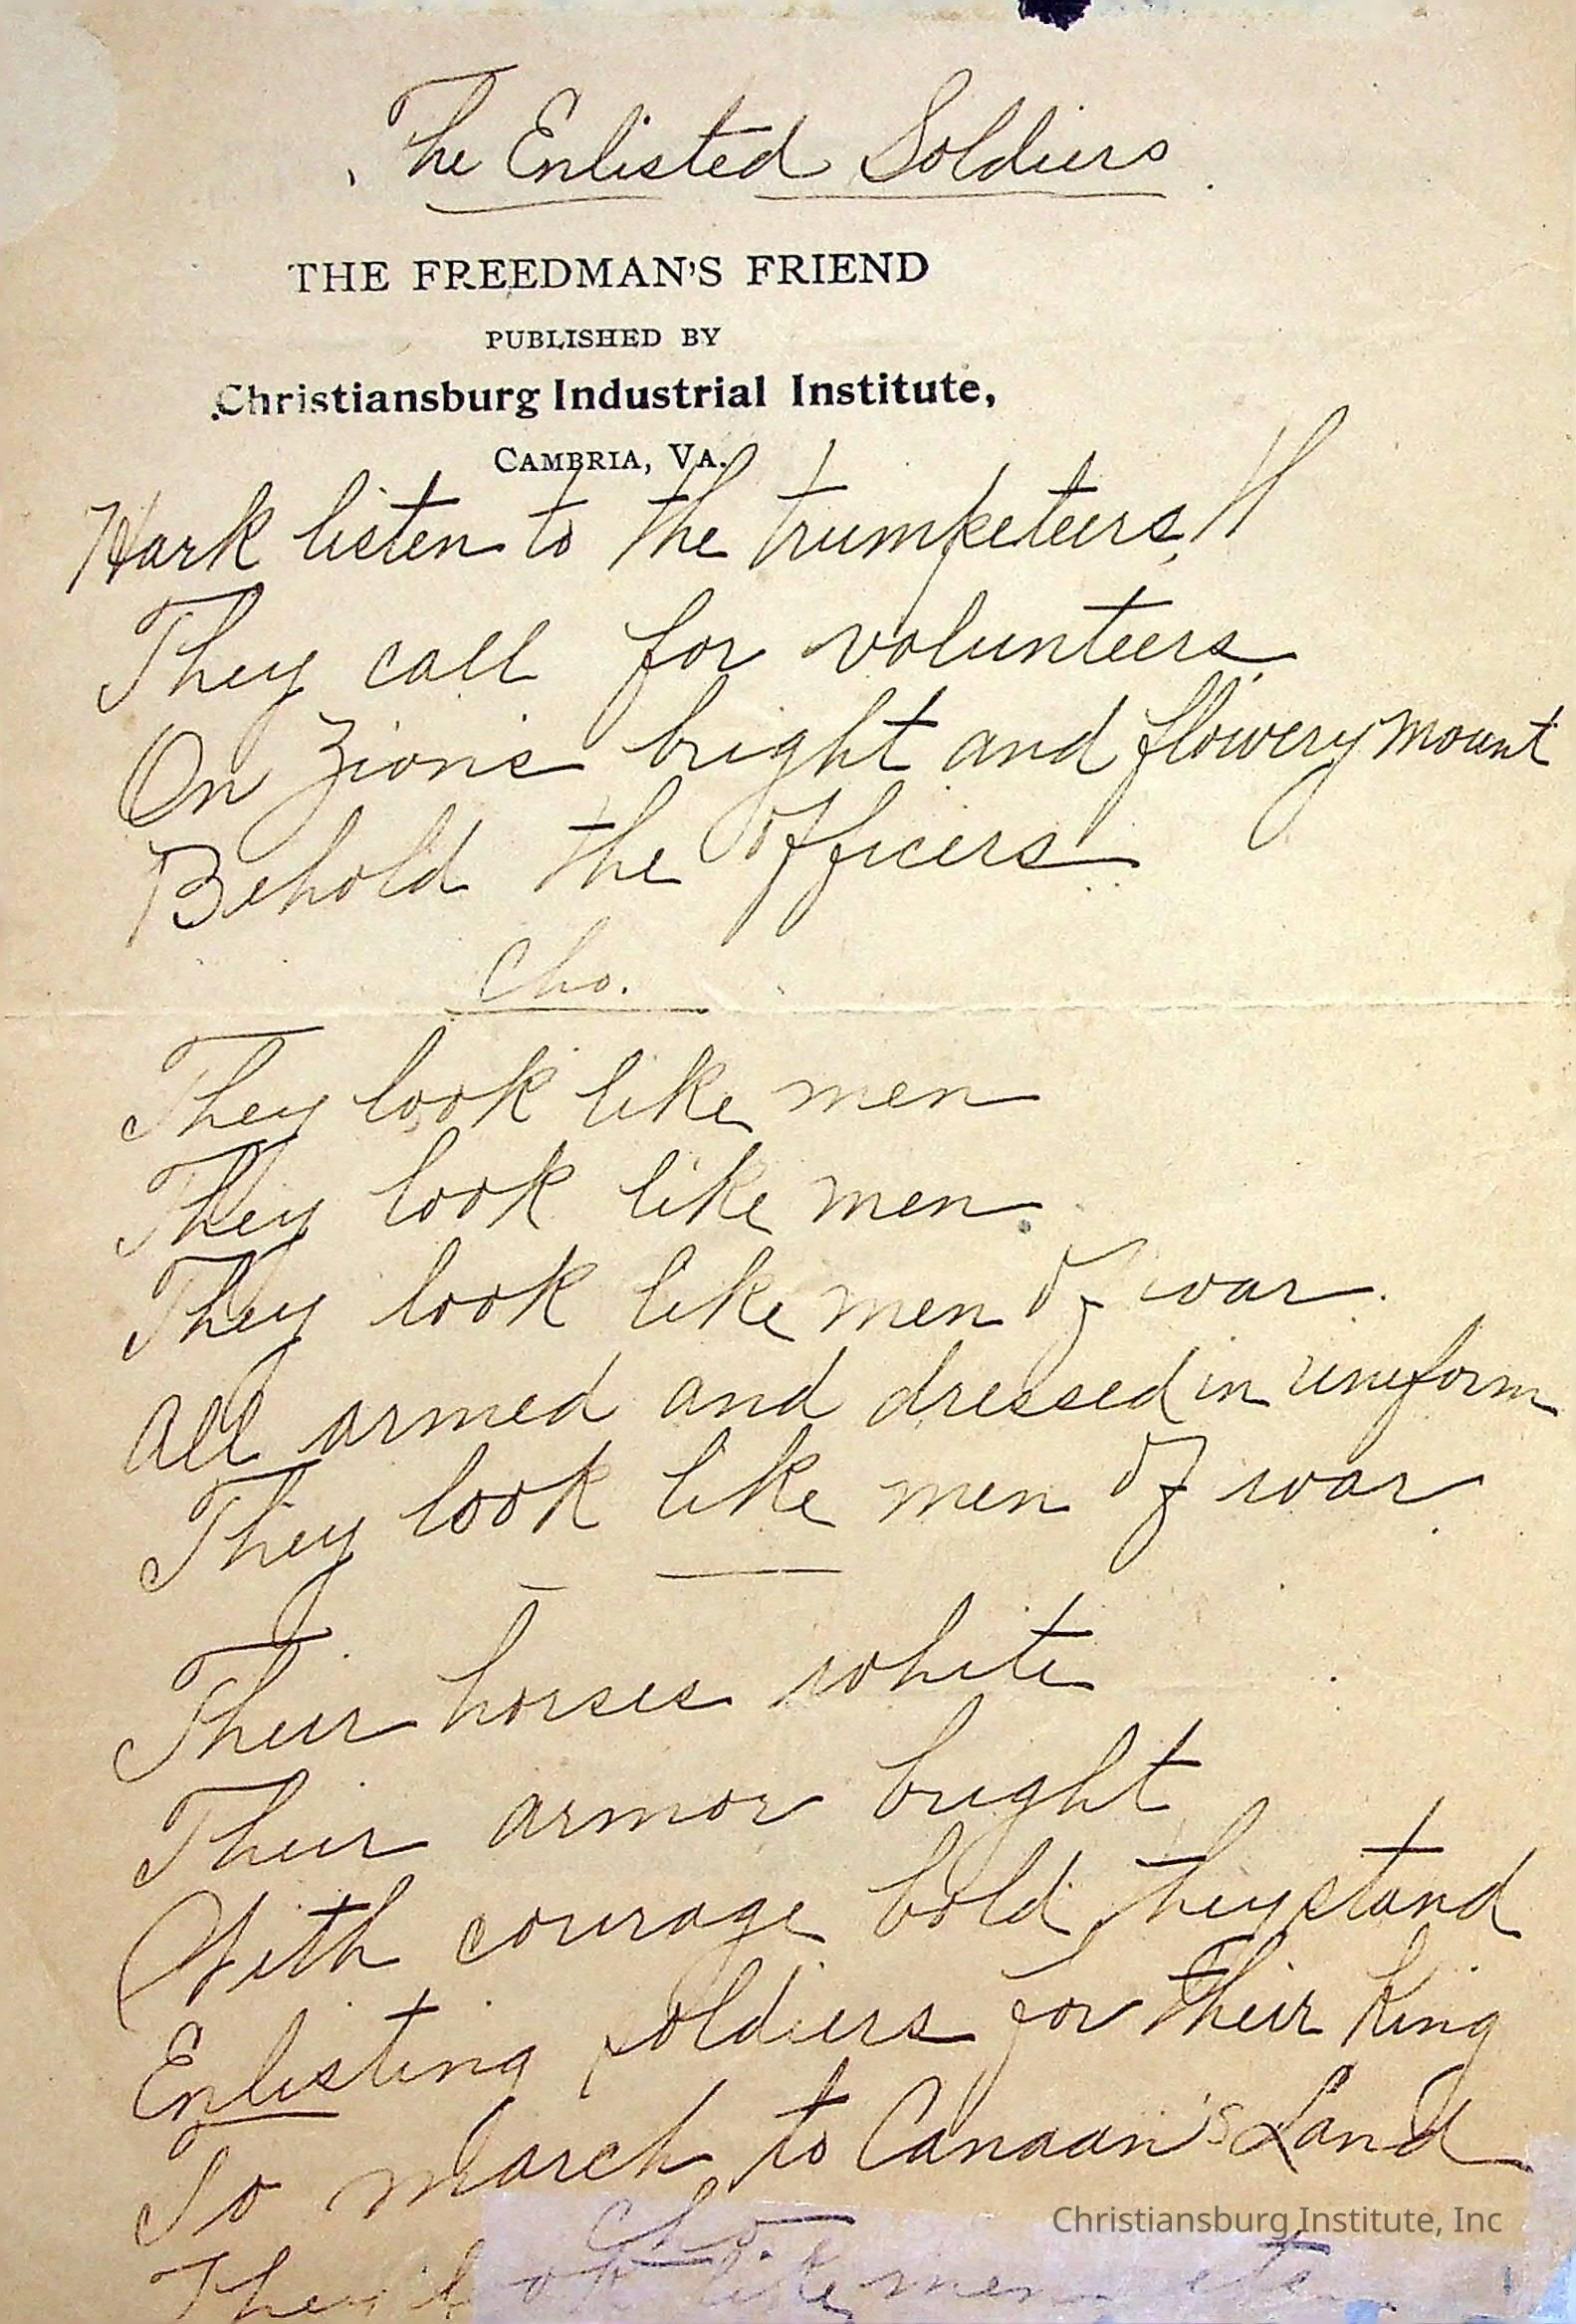 The Enlisted Soldiers.
THE FREEDMAN'S FRIEND
PUBLISHED BY
Christiansburg Industrial Institute,
CAMBRIA, VA.
Hark listen to the trumpeters,
They call for volunteers,
On Zion's bright and flowery mount
Behold the officers
Cho.
They look like men
They look like men
They look like men of war.
All armed and dressed in uniform
They look like men of war.
Their horses white
Their armor bright
With courage bold they stand
Enlisting soldiers for their King
To march to Canaan's Land
Cho.
They look like men etc
Christiansburg Institute, Inc